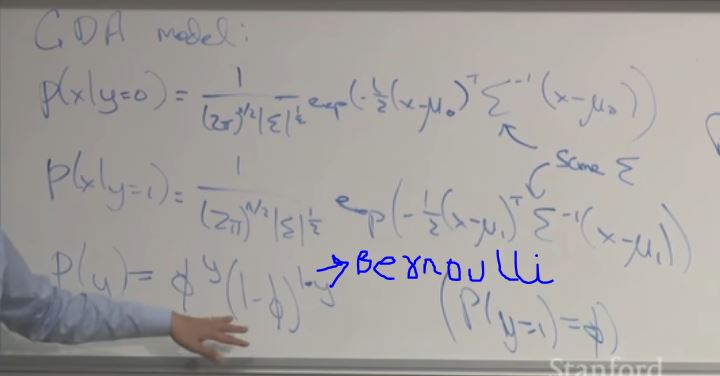 GDA model:
p(x|y=0) = 1/((2π)^(n/2)|Σ|^(1/2)) exp(-1/2(x-μ₀)ᵀ Σ⁻¹ (x-μ₀))
Same Σ
p(x|y=1) = 1/((2π)^(n/2)|Σ|^(1/2)) exp(-1/2(x-μ₁)ᵀ Σ⁻¹ (x-μ₁))
P(y) = ϕ^y (1-ϕ)^(1-y) → Bernoulli
(P(y=1) = ϕ)
Stanford